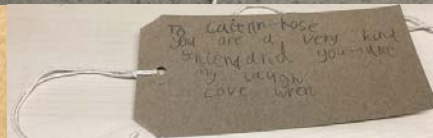 To Caterin-Rose
you are a very kind
and you make
my laugh
Love wren